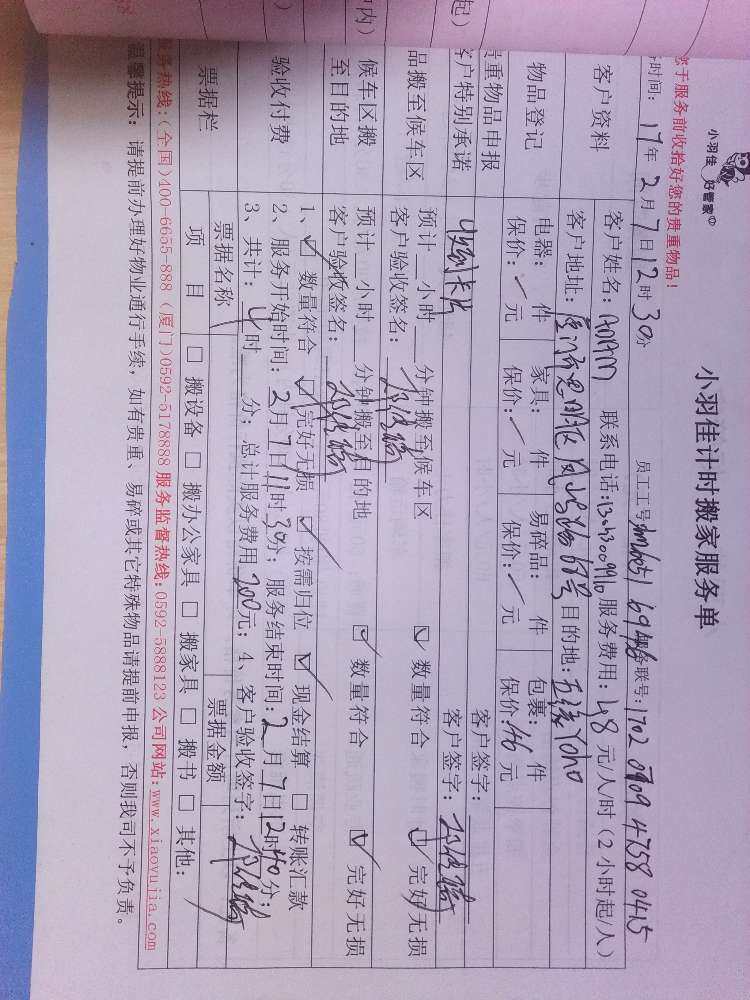 起）
内）
）
小羽佳
好管家
小羽佳计时搬家服务单
您于服务前收拾好您的贵重物品！
时间： 17年2月7日12时30分 员工工号： 联号：1702 0909 4758 0415
客户资料
客户姓名： 联系电话： 服务费用：48元/人/时（2小时起/人）
客户地址： 目的地：五缘Yoho
物品登记
电器： 件 家具： 件 易碎品： 件 包裹： 件
保价： 元 保价： 元 保价： 元 保价： 元
贵重物品申报
客户签字：
客户特别承诺
客户签字：
品搬至候车区
预计 小时 分钟搬至候车区 ☑ 数量符合 ☑ 完好无损
客户验收签名：
候车区搬至目的地
预计 小时 分钟搬至目的地 ☑ 数量符合 ☑ 完好无损
客户验收签名：
验收付费
1、☑ 数量符合 ☑ 完好无损 ☑ 按需归位 ☑ 现金结算 □ 转账汇款
2、服务开始时间：2月7日11时30分；服务结束时间：2月7日12时40分；
3、共计：4时 分；总计服务费用200元；4、客户验收签字：
票据栏
票据名称 票据金额
项 目 □ 搬设备 □ 搬办公家具 □ 搬家具 □ 搬书 □ 其他：
服务热线：（全国）400-6655-888（厦门）0592-5178888 服务监督热线：0592-5888123 公司网站：www.xiaoyujia.com
温馨提示：请提前办理好物业通行手续，如有贵重、易碎或其它特殊物品请提前申报，否则我司不予负责。